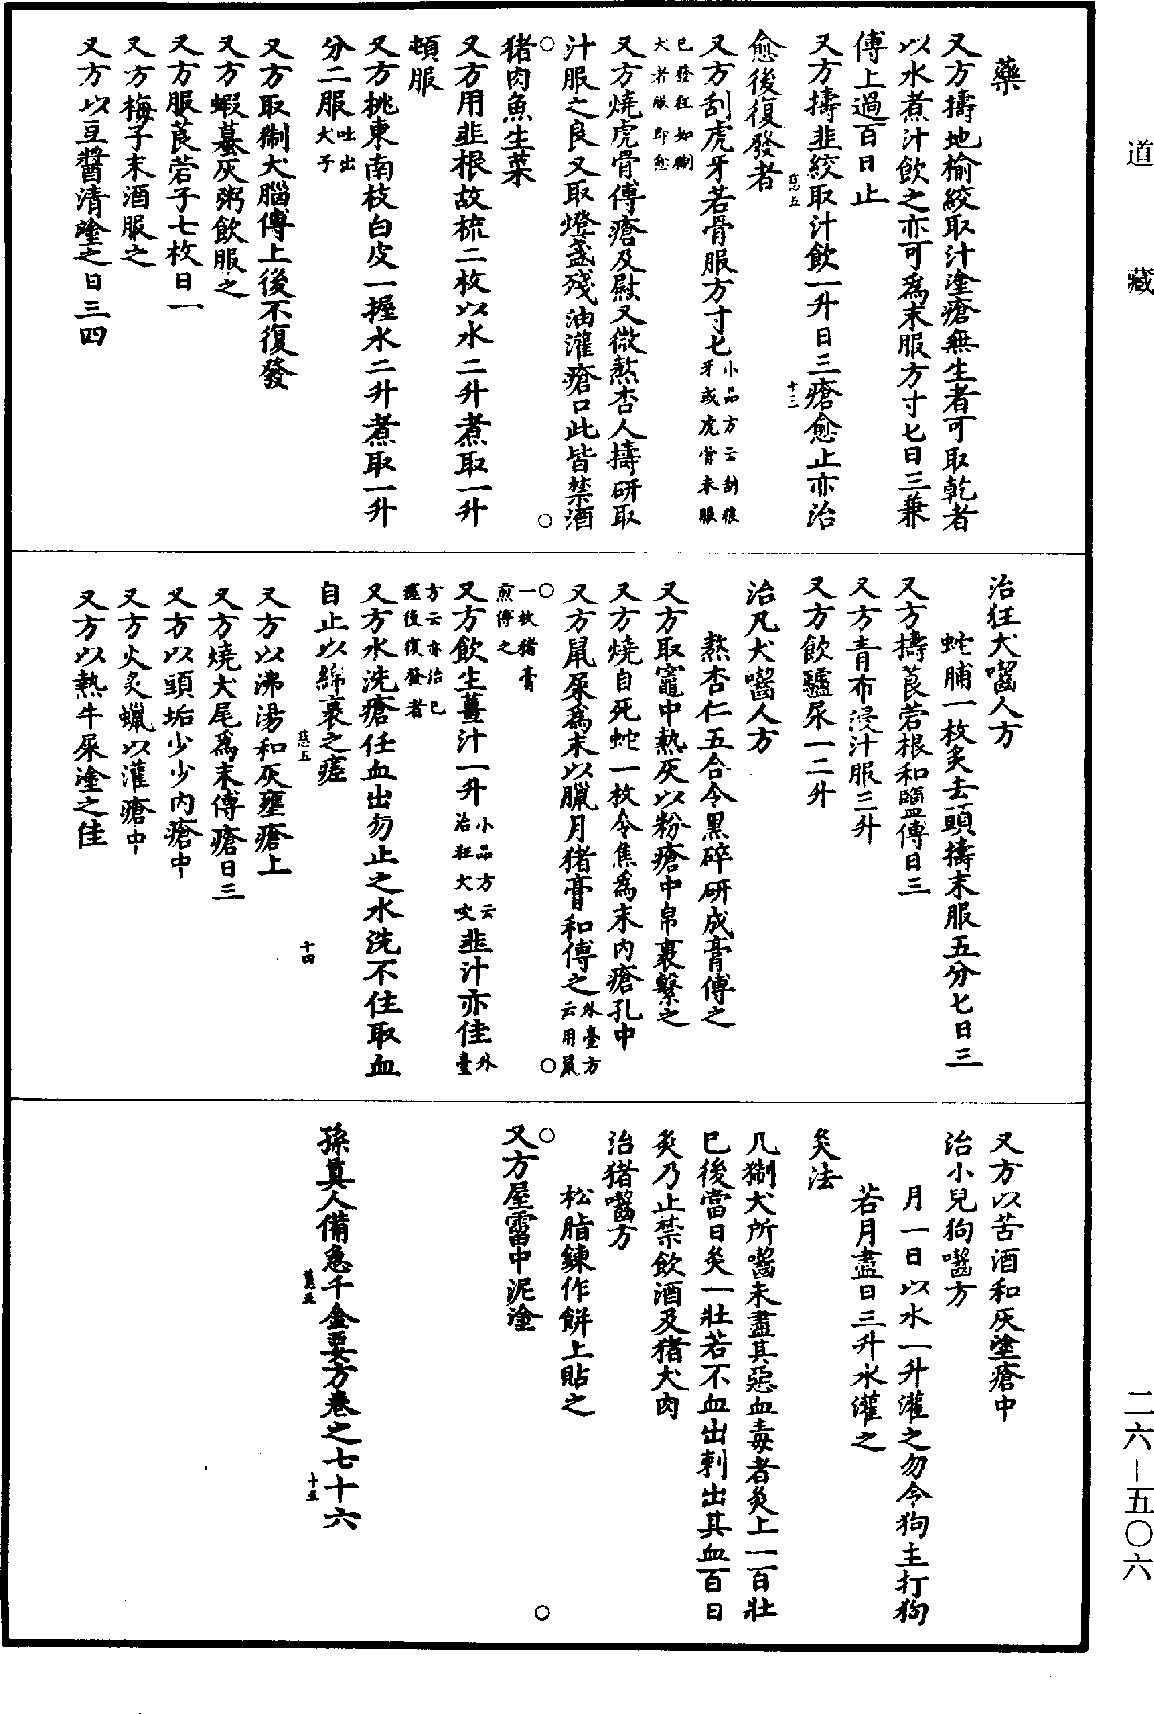 道藏
藥
又方擣地榆絞取汁塗瘡無生者可取乾者
以水煮汁飲之亦可為末服方寸匕日三兼
傅上過百日止
又方擣韭絞取汁飲一升日三瘡愈止亦治
愈後復發者
慈五
十三
又方刮虎牙若骨服方寸匕小品方云刮狼牙或虎骨末服
已發狂如猘犬者服即愈
又方燒虎骨傅瘡及慰又微熬杏人擣研取
汁服之良又取燈盞殘油灌瘡口此皆禁酒
猪肉魚生菜
又方用韭根故梳二枚以水二升煮取一升
頓服
又方桃東南枝白皮一握水二升煮取一升
分二服吐出犬子
又方取猘犬腦傅上後不復發
又方蝦蟇灰粥飲服之
又方服莨菪子七枚日一
又方梅子末酒服之
又方以豆醬清塗之日三四
治狂犬嚙人方
蛇脯一枚炙去頭擣末服五分匕日三
又方擣莨菪根和鹽傅日三
又方青布浸汁服三升
又方飲驢尿一二升
治凡犬嚙人方
熬杏仁五合令黑碎研成膏傅之
又方取竈中熱灰以粉瘡中帛裹繫之
又方燒自死蛇一枚令焦為末內瘡孔中
又方鼠屎為末以臘月猪膏和傅之外臺方云用鼠
一枚猪膏煎傅之
又方飲生薑汁一升小品方云治狂犬咬韭汁亦佳外臺
方云亦治已瘥後復發者
又方水洗瘡任血出勿止之水洗不住取血
自止以綿裹之瘥
慈五
十四
又方以沸湯和灰壅瘡上
又方燒犬尾為末傅瘡日三
又方以頭垢少少內瘡中
又方火炙蠟以灌瘡中
又方以熱牛屎塗之佳
又方以苦酒和灰塗瘡中
治小兒狗嚙方
月一日以水一升灌之勿令狗主打狗
若月盡日三升水灌之
灸法
凡猘犬所嚙未盡其惡血毒者灸上一百壯
已後當日灸一壯若不血出刺出其血百日
灸乃止禁飲酒及猪犬肉
治猪嚙方
松脂鍊作餅上貼之
又方屋霤中泥塗
孫真人備急千金要方卷之七十六
十五
二六－五〇六